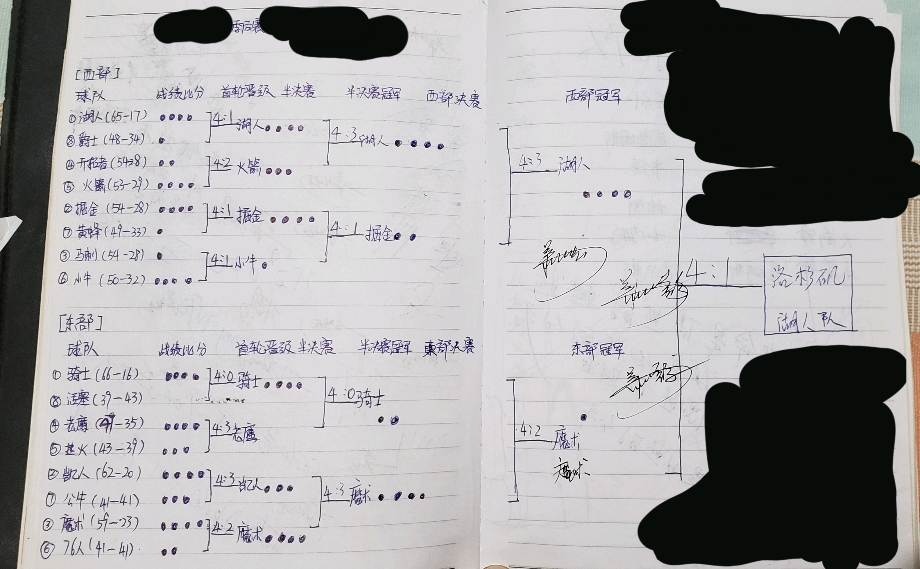 季后赛
[西部]
球队 战绩比分 首轮晋级 半决赛 半决赛冠军 西部决赛
①湖人(65-17)
⑧爵士(48-34)
4:1 湖人
④开拓者(54-28)
⑤火箭(53-29)
4:2 火箭
4:3 湖人
②掘金(54-28)
⑦黄蜂(49-33)
4:1 掘金
③马刺(54-28)
⑥小牛(50-32)
4:1 小牛
4:1 掘金
[东部]
球队 战绩比分 首轮晋级 半决赛 半决赛冠军 东部决赛
①骑士(66-16)
⑧活塞(39-43)
4:0 骑士
④老鹰(47-35)
⑤热火(43-39)
4:3 老鹰
4:0 骑士
②凯尔特人(62-20)
⑦公牛(41-41)
4:3
③魔术(59-23)
⑥76人(41-41)
4:2 魔术
4:3 魔术
西部冠军
4:3 湖人
东部冠军
4:2 魔术
魔术
4:1
洛杉矶
湖人队